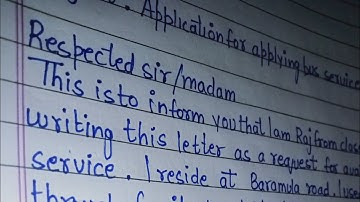 . Application for applying bus service
Respected sir/madam
This is to inform you that I am Raj from
writing this letter as a request for
service. I reside at Baramula road. I use